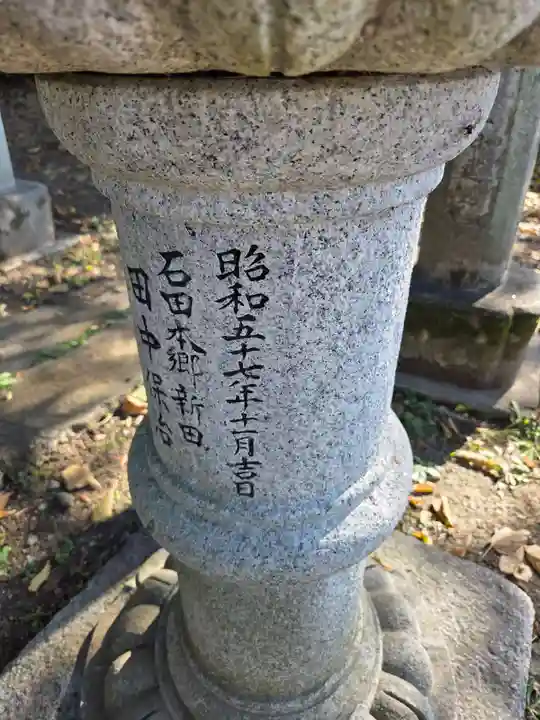 昭和五十七年十一月吉日
石田本郷新田
田中保治